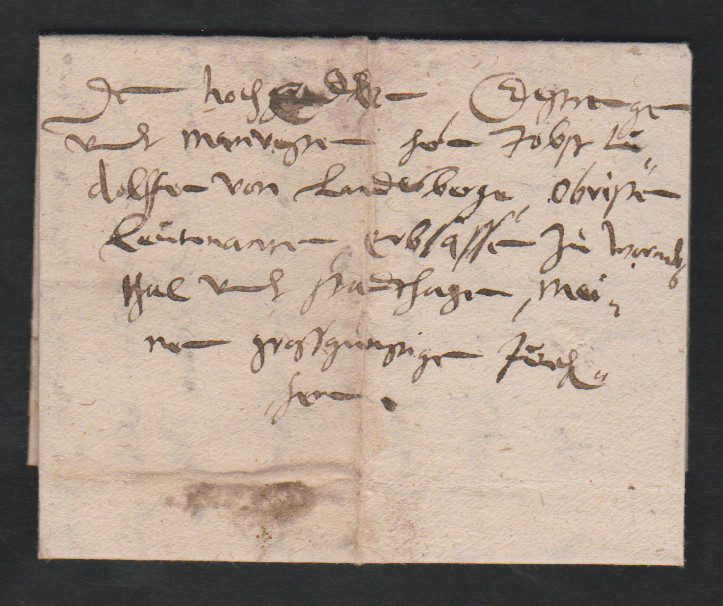 Dem hoch Edlen Gestrenge
undt Manvesten hern Jobst Lu
dolffen von Landesberge, Obristen
Leütenanten, Erbsassen zu Worms
thal undt Stadthagen, mei
nem grossgünstigen
hern.